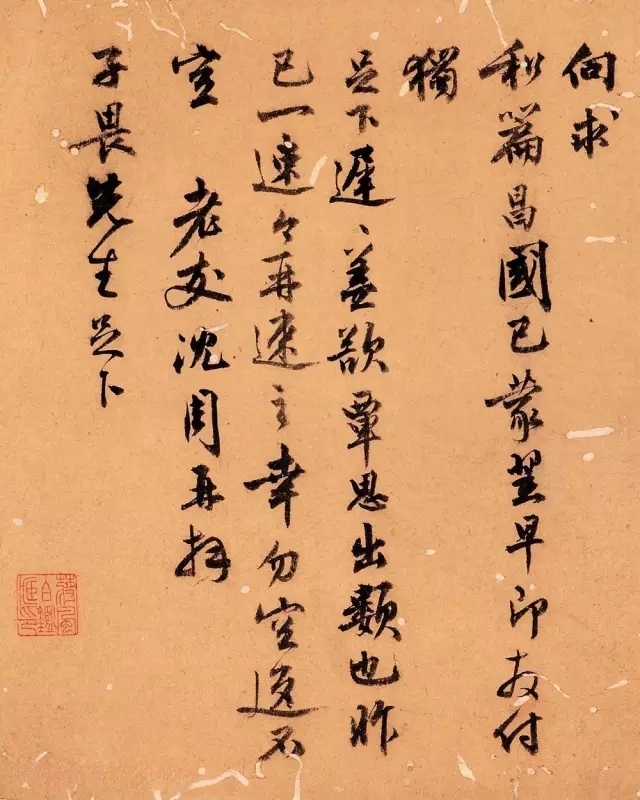 向求
秋篇昌國已蒙翌早印去付
獨
足下遲〻蓋欲覃思出類也昨
已一速今再速之幸勿空返不
宣 老友沈周再拜
子畏先生足下